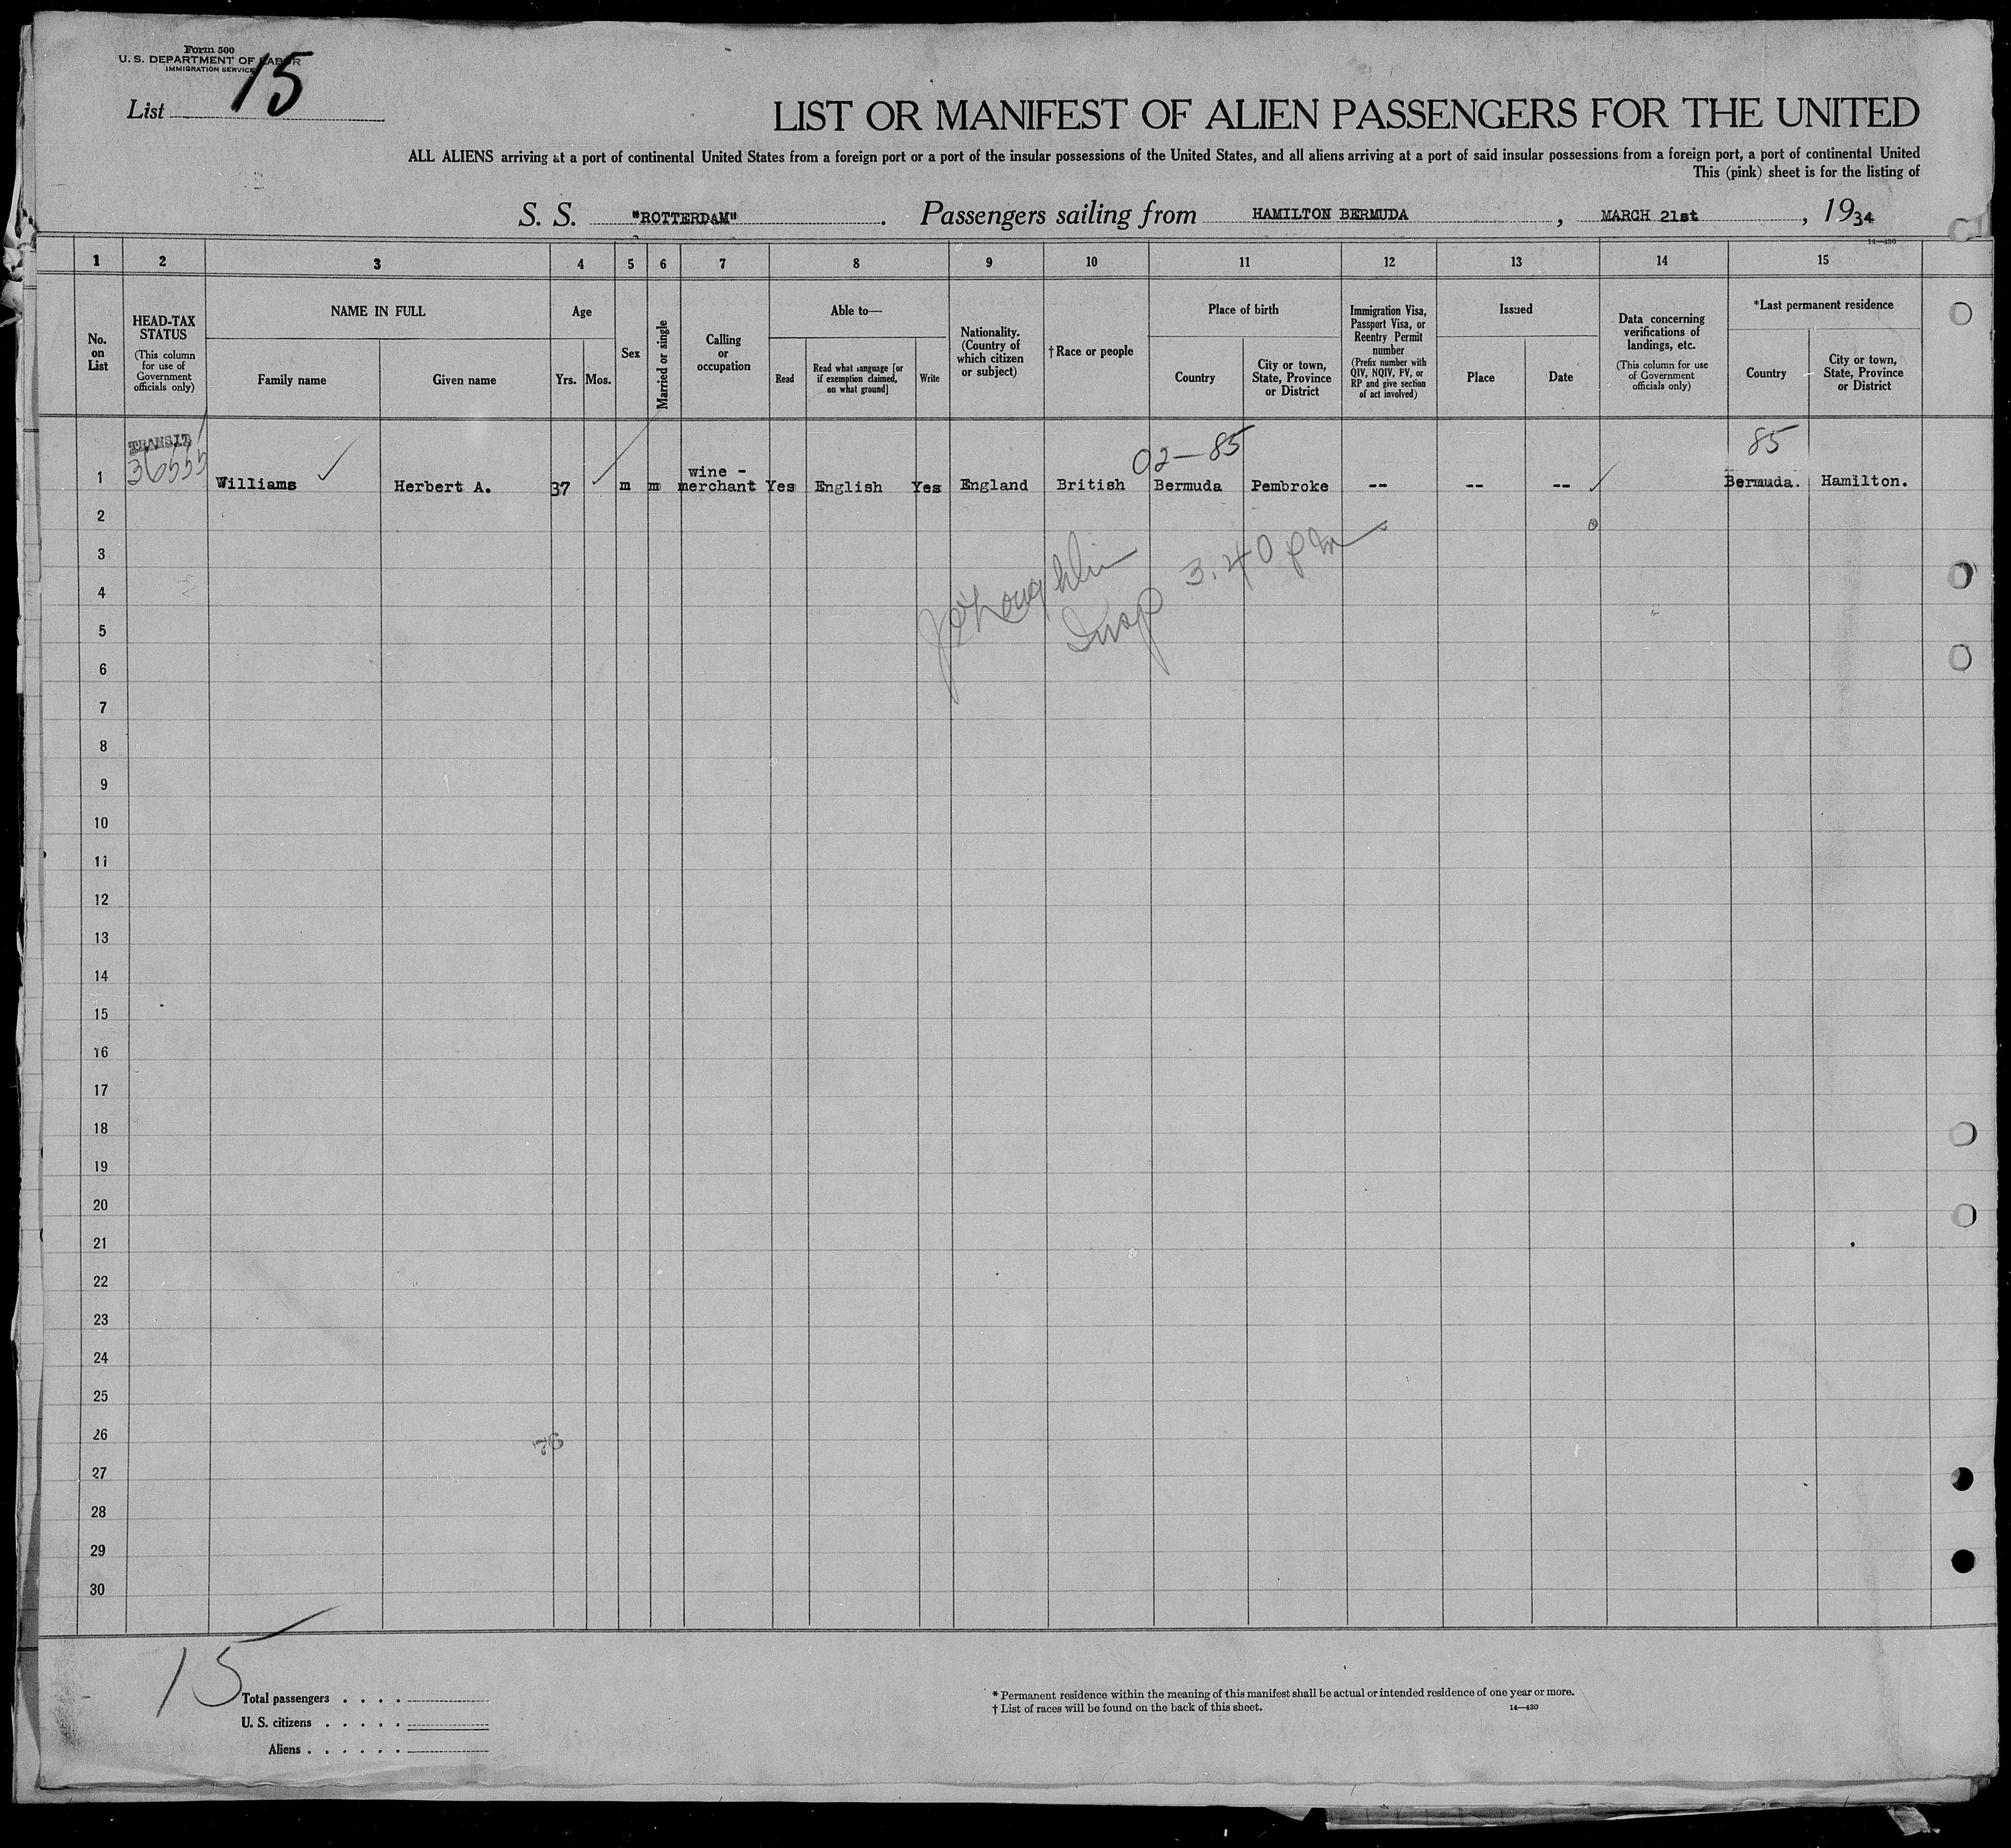 Form 500
U. S. DEPARTMENT OF LABOR
IMMIGRATION SERVICE
List 15
LIST OR MANIFEST OF ALIEN PASSENGERS FOR THE UNITED
ALL ALIENS arriving at a port of continental United States from a foreign port or a port of the insular possessions of the United States, and all aliens arriving at a port of said insular possessions from a foreign port, a port of continental United
This (pink) sheet is for the listing of
S. S. "ROTTERDAM". Passengers sailing from HAMILTON BERMUDA, MARCH 21st, 1934
14—430
1 2 3 4 5 6 7 8 9 10 11 12 13 14 15
No. on List
HEAD-TAX STATUS
(This column for use of Government officials only)
NAME IN FULL
Family name
Given name
Age
Yrs. Mos.
Sex
Married or single
Calling or occupation
Able to—
Read
Read what language [or if exemption claimed, on what ground]
Write
Nationality. (Country of which citizen or subject)
†Race or people
Place of birth
Country
City or town, State, Province or District
Immigration Visa, Passport Visa, or Reentry Permit number
(Prefix number with QIV, NQIV, PV, or RP and give section of act involved)
Issued
Place
Date
Data concerning verifications of landings, etc.
(This column for use of Government officials only)
*Last permanent residence
Country
City or town, State, Province or District
TRANSIT
02—85
85
1 36555 Williams Herbert A. 37 m m wine - merchant Yes English Yes England British Bermuda Pembroke -- -- -- Bermuda. Hamilton.
2
3
3.40 pm
4
Insp
5
6
7
8
9
10
11
12
13
14
15
16
17
18
19
20
21
22
23
24
25
26
76
27
28
29
30
15
Total passengers . . . .
U. S. citizens . . . . .
Aliens . . . . . .
* Permanent residence within the meaning of this manifest shall be actual or intended residence of one year or more.
† List of races will be found on the back of this sheet.
14—430